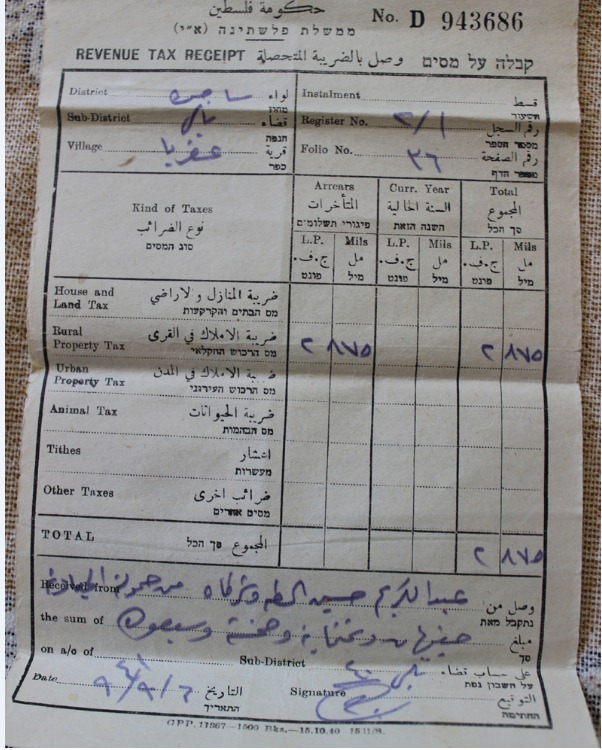 حكومة فلسطين No. D 943686
ממשלת פלשתינה (א״י)
REVENUE TAX RECEIPT وصل بالضريبة المتحصلة קבלה על מסים
District لواء Instalment قسط
מחוז שעור
Sub-District قضاء Register No. ٢/١ رقم السجل
נפה מספר הספר
Village عقربا قرية Folio No. ٣٦ رقم الصفحة
כפר מספר הדף
Arrears Curr. Year Total
Kind of Taxes المتأخرات السنة الحالية المجموع
نوع الضرائب פיגורי תשלומים השנה הזאת סך הכל
סוג המסים L.P. Mils L.P. Mils L.P. Mils
ج.ف. مل ج.ف. مل ج.ف. مل
פונט מיל פונט מיל פונט מיל
House and ضريبة المنازل والاراضي
Land Tax מס הבתים והקרקעות
Rural ضريبة الاملاك في القرى
Property Tax מס הרכוש החקלאי ٢ ٨٧٥ ٢ ٨٧٥
Urban ضريبة الاملاك في المدن
Property Tax מס הרכוש העירוני
Animal Tax ضريبة الحيوانات
מס הבהמות
Tithes اعشار
מעשרות
Other Taxes ضرائب اخرى
מסים אחרים
TOTAL المجموع סך הכל ٢ ٨٧٥
Received from عبد الكريم حسين وصل من
נתקבל מאת
the sum of جنيهان وثمنماية وخمسة وسبعون مبلغ
סך
on a/c of Sub-District على حساب قضاء
על חשבון נפת
Date التاريخ Signature التوقيع
התאריך החתימה
G.P.P. 11867—1500 Bks.—15.10.40